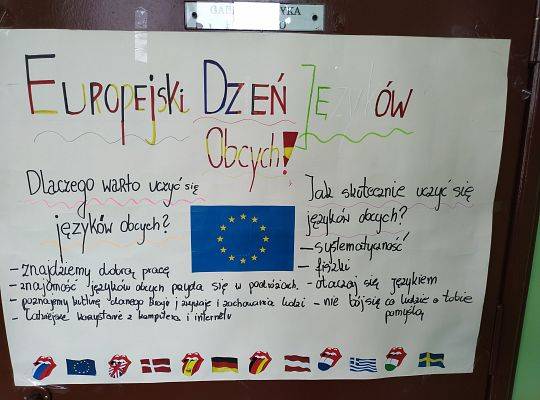 Europejski Dzień Języków
Obcych!
Dlaczego warto uczyć się
języków obcych?
- znajdziemy dobrą pracę
- znajomość języków obcych przyda się w podróżach.
- poznajemy kulturę danego kraju i zachowania ludzi
- łatwiejsze korzystanie z komputera i internetu
Jak skutecznie uczyć się
języków obcych?
- systematyczność
- fiszki
- otaczaj się językiem
- nie bój się co ludzie o tobie
pomyślą